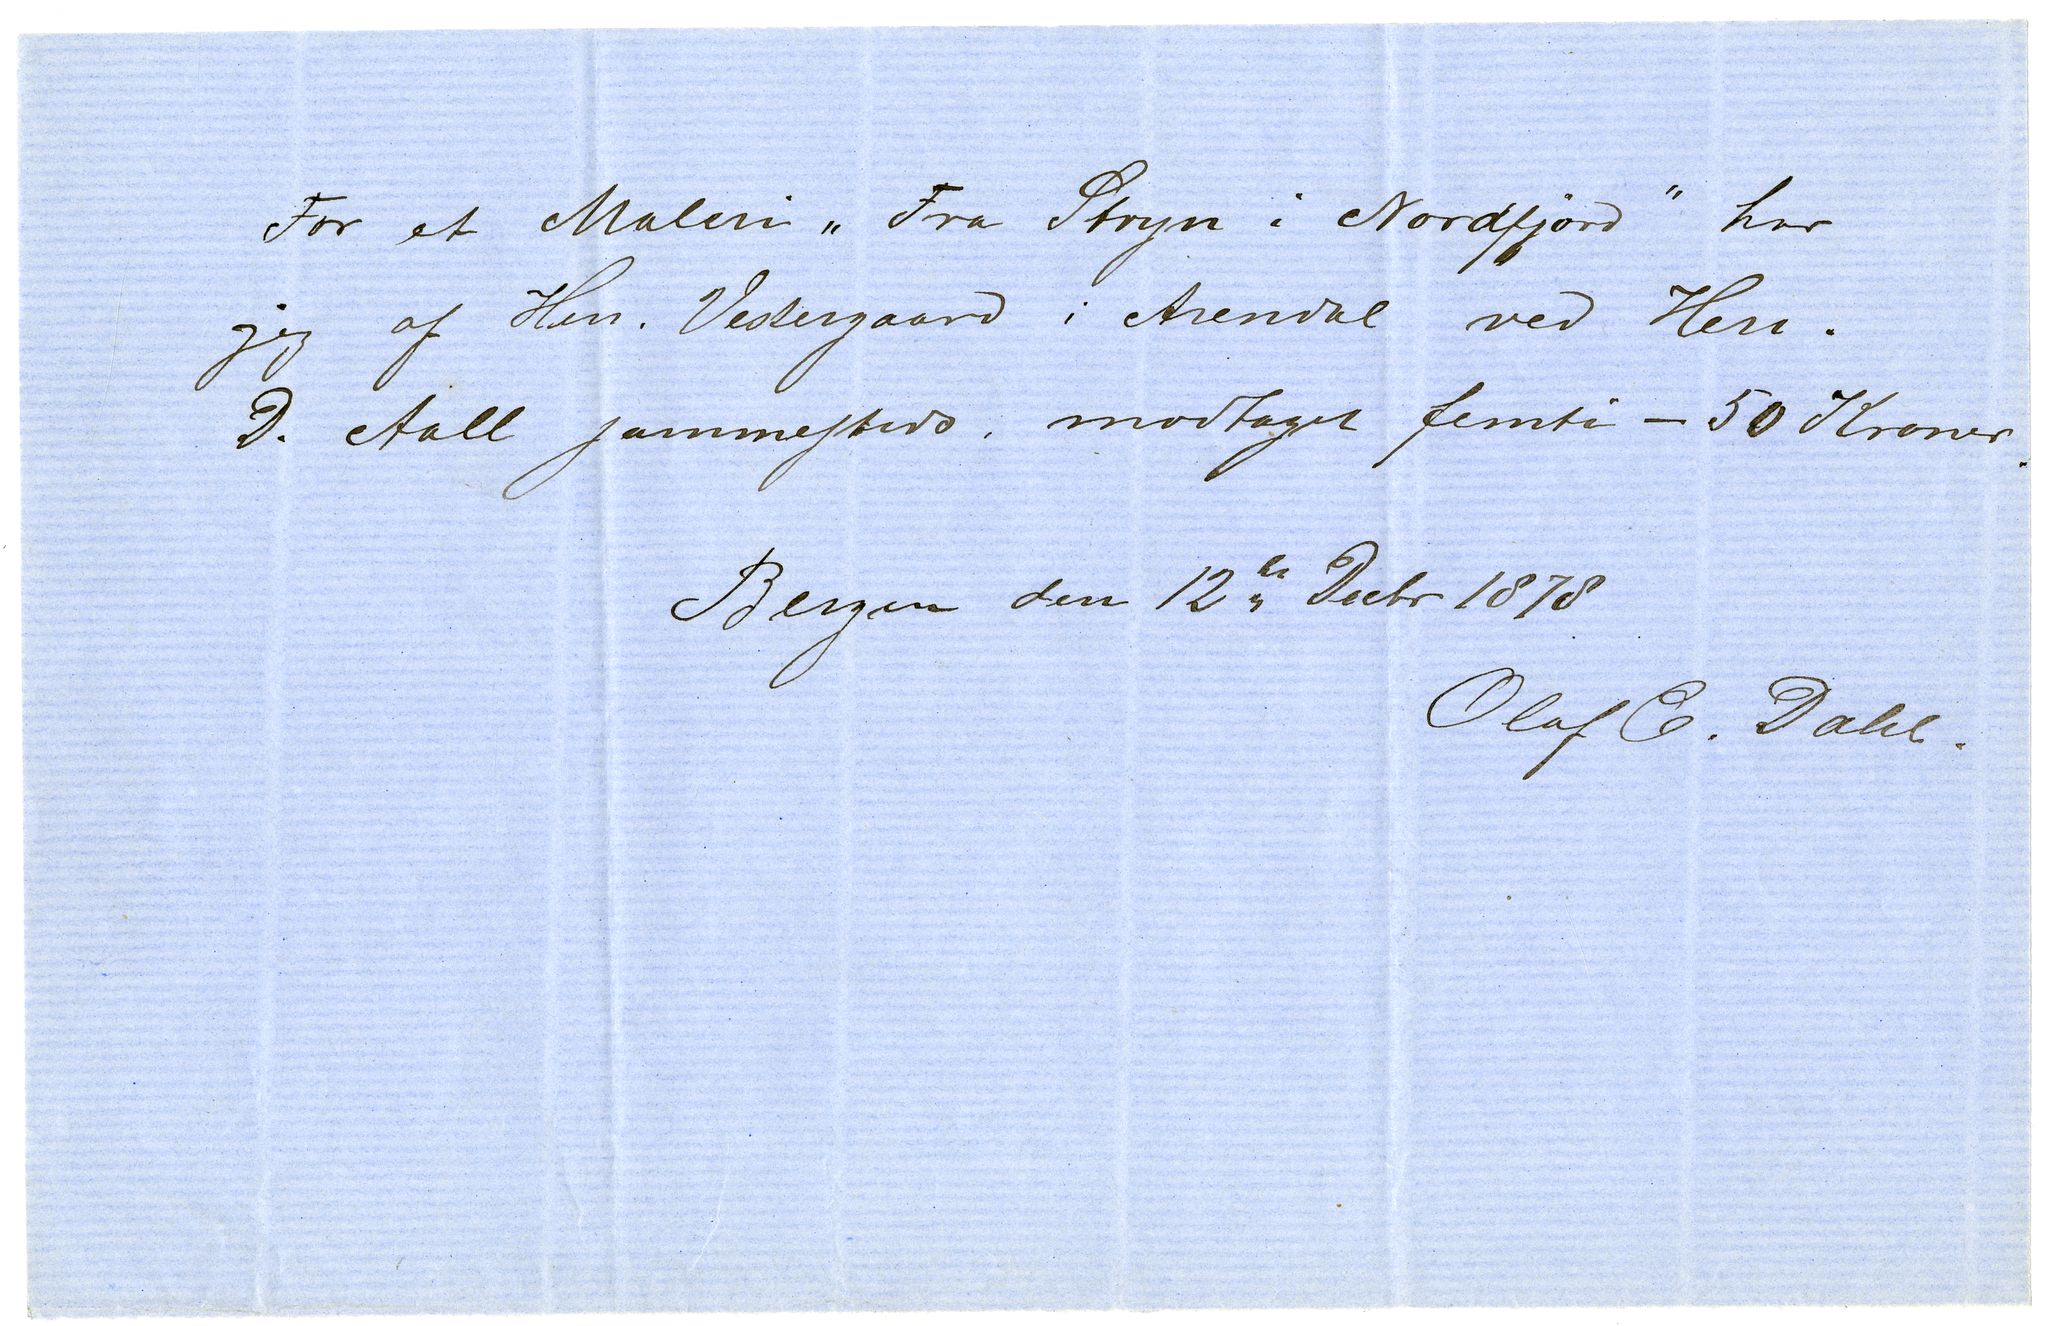 For et Maleri „Fra Stryn i Nordfjord" har
jeg af Herr. Vestergaard i Arendal ved Herr.
D. Aall sammesteds, modtaget femti – 50 Kroner.
Bergen den 12te Decbr 1878
Olaf C. Dahl.